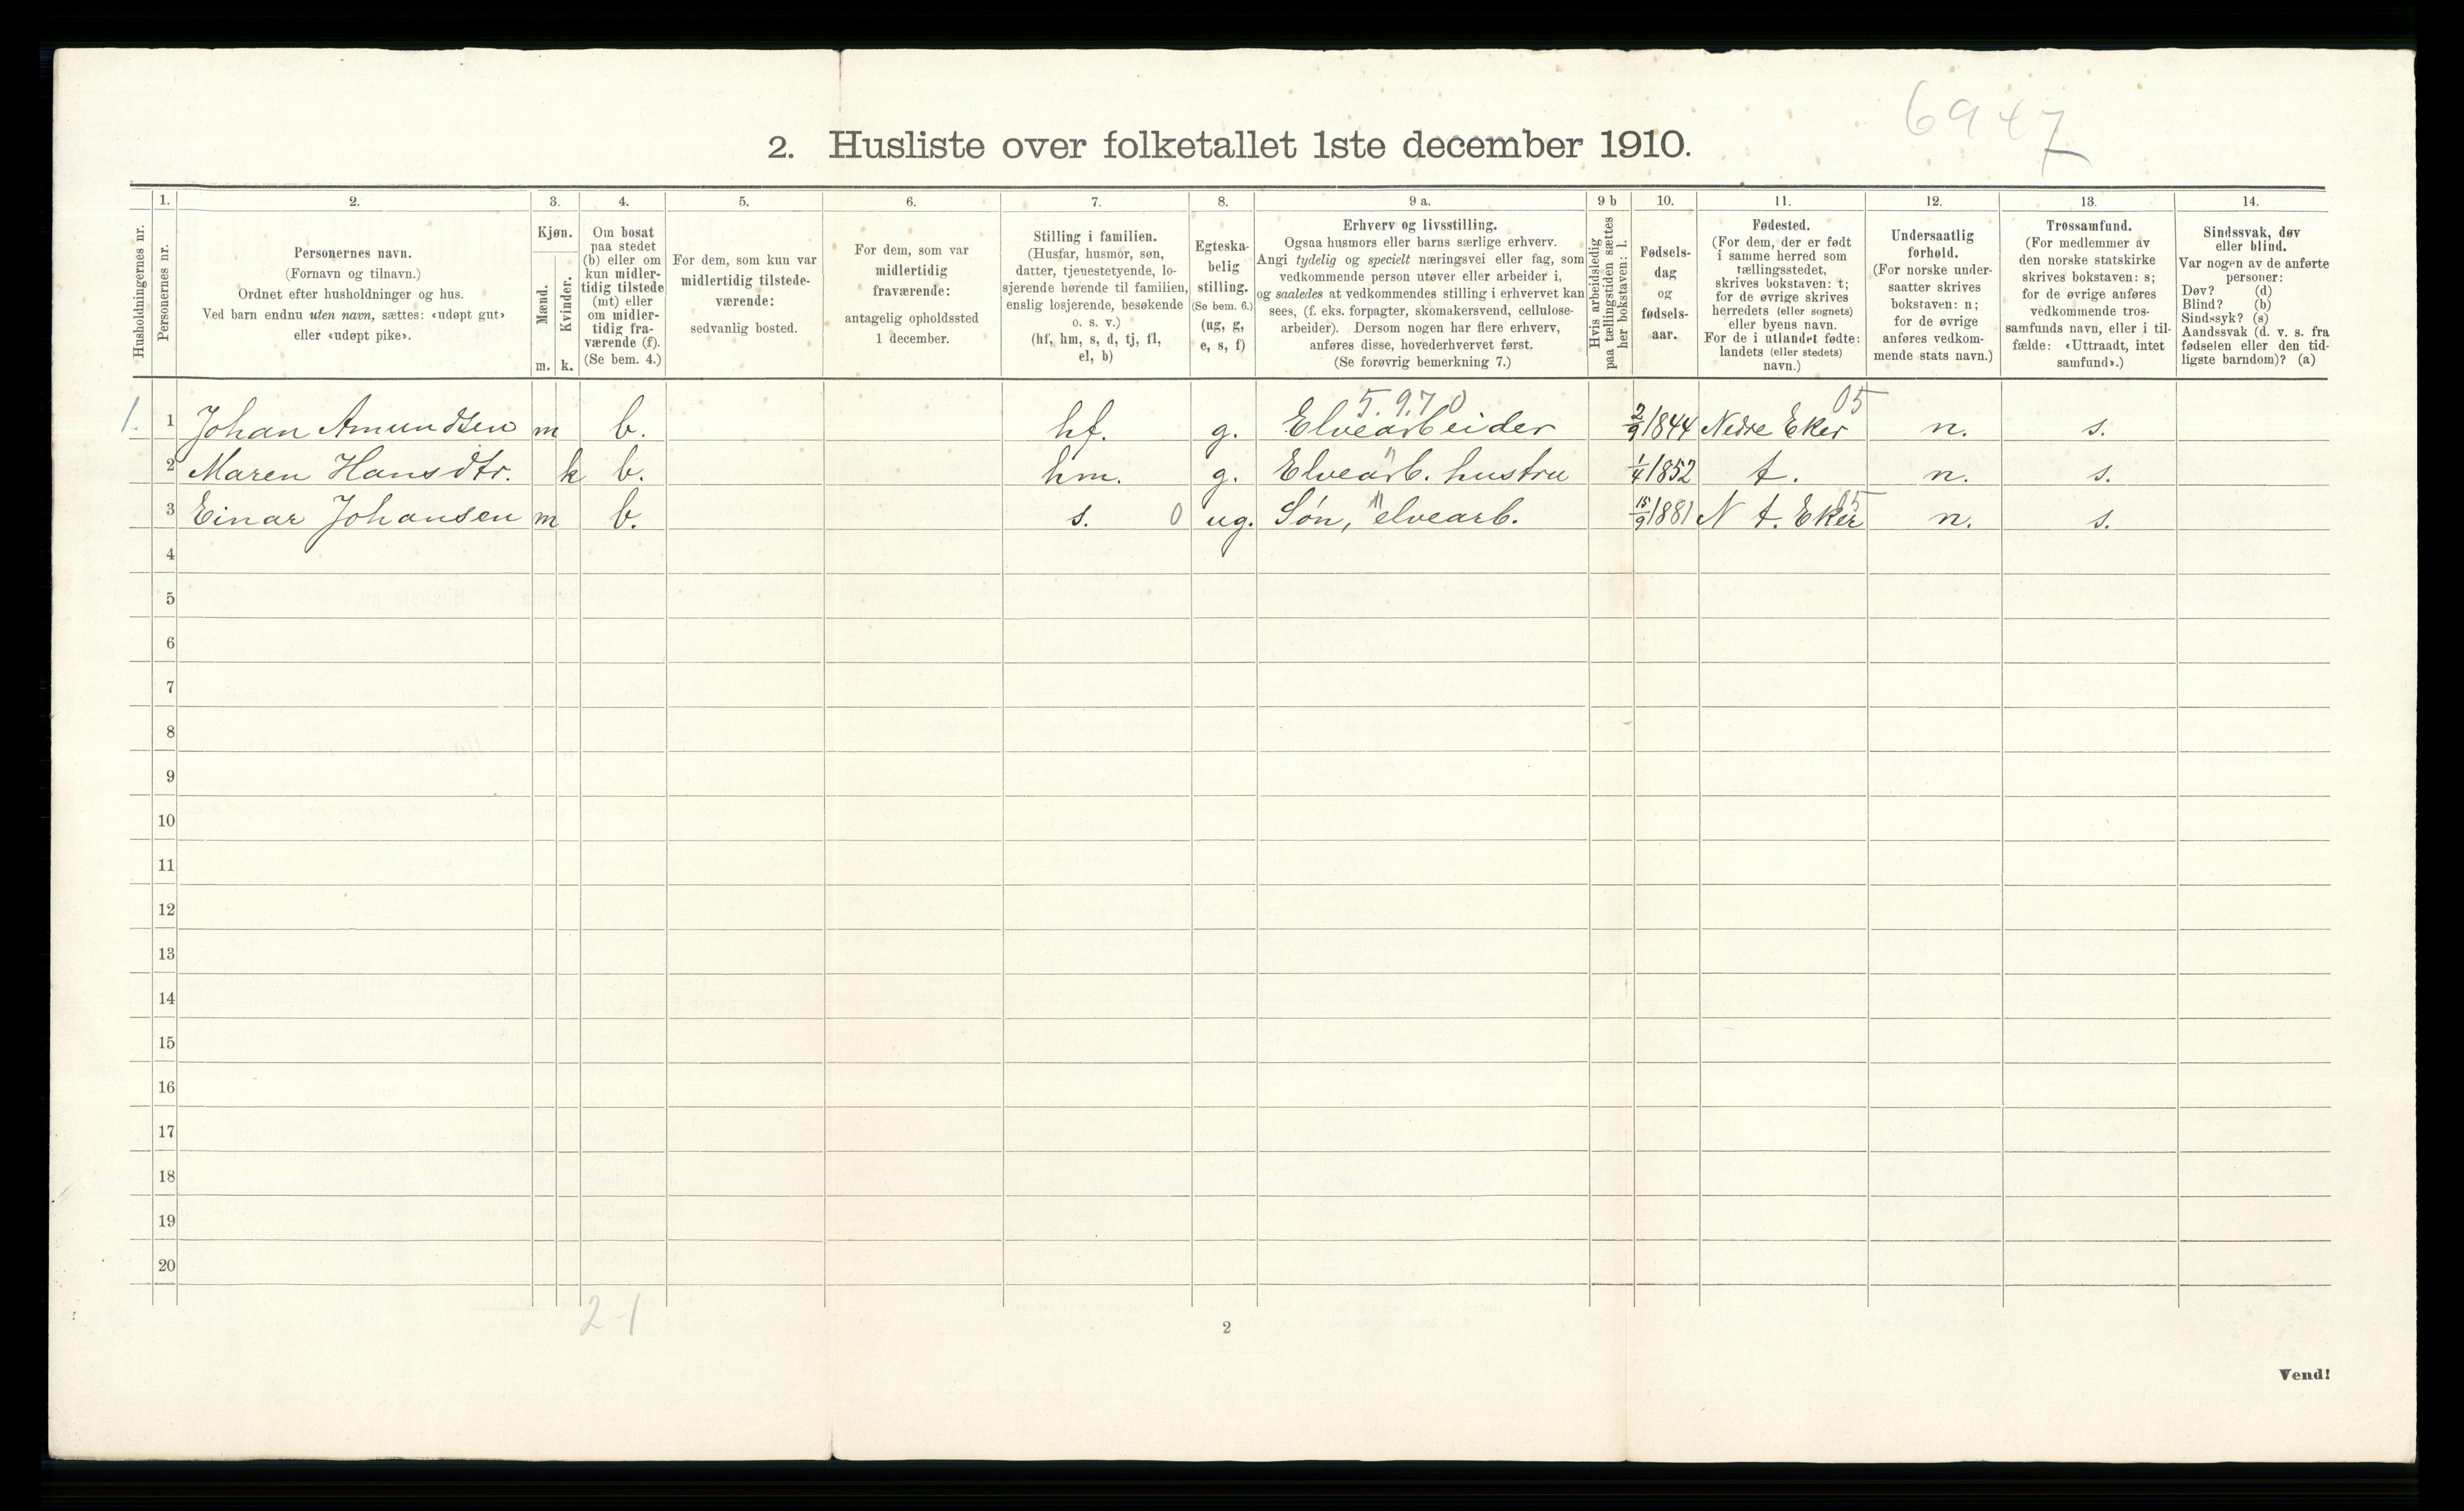 6947
2. Husliste over folketallet 1ste december 1910.
Husholdningernes nr.
1.
Personernes nr.
2.
Personernes navn.
(Fornavn og tilnavn.)
Ordnet efter husholdninger og hus.
Ved barn endnu uten navn, sættes: «udøpt gut»
eller «udøpt pike».
3.
Kjøn.
Mænd.
Kvinder.
m. k.
4.
Om bosat
paa stedet
(b) eller om
kun midler-
tidig tilstede
(mt) eller
om midler-
tidig fra-
værende (f).
(Se bem. 4.)
5.
For dem, som kun var
midlertidig tilstede-
værende:
sedvanlig bosted.
6.
For dem, som var
midlertidig
fraværende:
antagelig opholdssted
1 december.
7.
Stilling i familien.
(Husfar, husmor, søn,
datter, tjenestetyende, lo-
sjerende hørende til familien,
enslig losjerende, besøkende
o. s. v.)
(hf, hm, s, d, tj, fl,
el, b)
8.
Egteska-
belig
stilling.
(Se bem. 6.)
(ug, g,
e, s, f)
9 a.
Erhverv og livsstilling.
Ogsaa husmors eller barns særlige erhverv.
Angi tydelig og specielt næringsvei eller fag, som
vedkommende person utøver eller arbeider i,
og saaledes at vedkommendes stilling i erhvervet kan
sees, (f. eks. forpagter, skomakersvend, cellulose-
arbeider). Dersom nogen har flere erhverv,
anføres disse, hovederhvervet først.
(Se forøvrig bemerkning 7.)
9 b
Hvis arbeidsledig
paa tællingstiden sættes
her bokstaven: l.
10.
Fødsels-
dag
og
fødsels-
aar.
11.
Fødested.
(For dem, der er født
i samme herred som
tællingsstedet,
skrives bokstaven: t;
for de øvrige skrives
herredets (eller sognets)
eller byens navn.
For de i utlandet fødte:
landets (eller stedets)
navn.)
12.
Undersaatlig
forhold.
(For norske under-
saatter skrives
bokstaven: n;
for de øvrige
anføres vedkom-
mende stats navn.)
13.
Trossamfund.
(For medlemmer av
den norske statskirke
skrives bokstaven: s;
for de øvrige anføres
vedkommende tros-
samfunds navn, eller i til-
fælde: «Uttraadt, intet
samfund».)
14.
Sindssvak, døv
eller blind.
Var nogen av de anførte
personer:
Døv? (d)
Blind? (b)
Sindssyk? (s)
Aandssvak (d. v. s. fra
fødselen eller den tid-
ligste barndom)? (a)
5.9.70 05
1. 1 Johan Amundsen m b. hf. g. Elvearbeider 2/9 1844 Nedre Eker n. s.
2 Maren Hansdtr. k b. hm. g. Elvearb. hustru 1/4 1852 t. n. s.
3 Einar Johansen m b. s. 0 ug. Søn, elvearb. 15/9 1881 N t. Eker 05 n. s.
4
5
6
7
8
9
10
11
12
13
14
15
16
17
18
19
20
2-1
2
Vend!